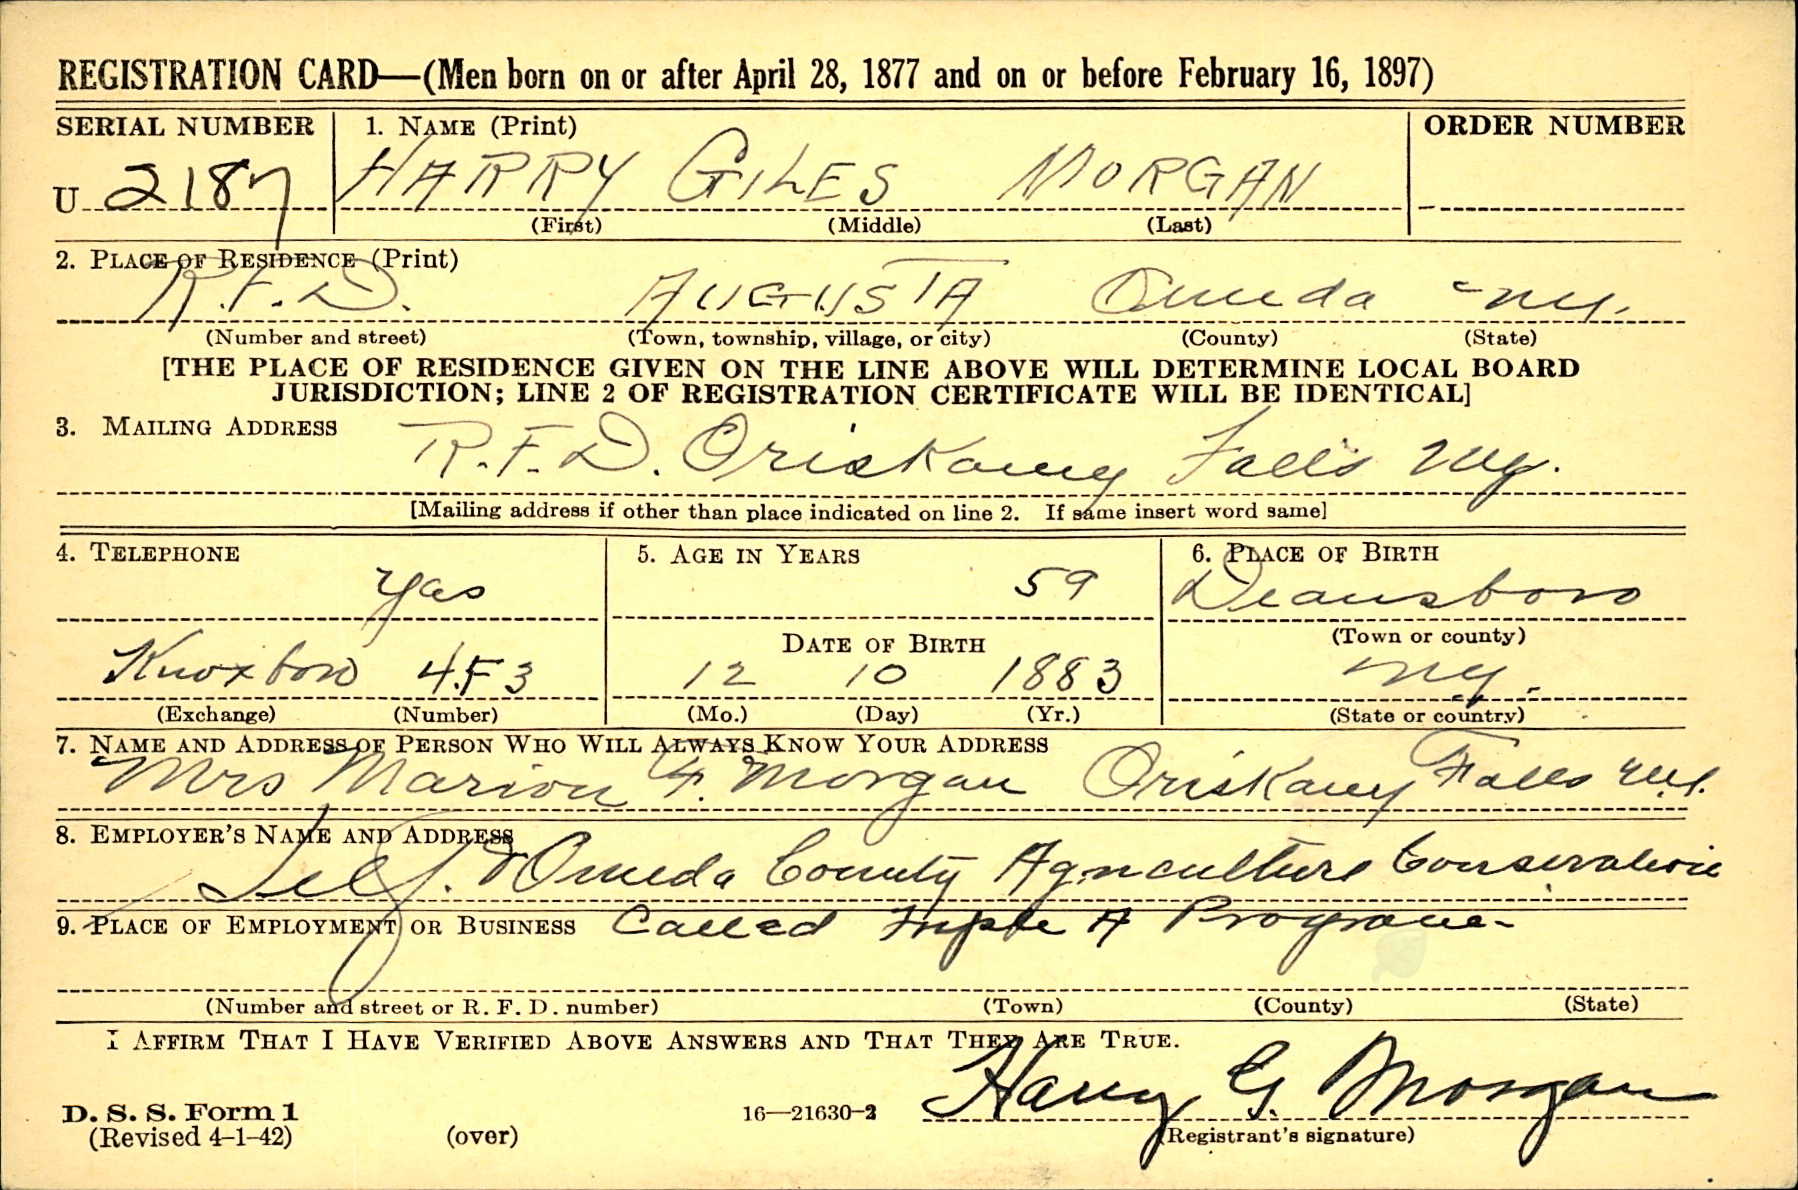 REGISTRATION CARD—(Men born on or after April 28, 1877 and on or before February 16, 1897)
SERIAL NUMBER 1. NAME (Print) ORDER NUMBER
U 2187 HARRY GILES MORGAN
(First) (Middle) (Last)
2. PLACE OF RESIDENCE (Print)
R.F.D. AUGUSTA Oneida NY.
(Number and street) (Town, township, village, or city) (County) (State)
[THE PLACE OF RESIDENCE GIVEN ON THE LINE ABOVE WILL DETERMINE LOCAL BOARD
JURISDICTION; LINE 2 OF REGISTRATION CERTIFICATE WILL BE IDENTICAL]
3. MAILING ADDRESS
R.F.D. Oriskany Falls Ny.
[Mailing address if other than place indicated on line 2. If same insert word same]
4. TELEPHONE 5. AGE IN YEARS 6. PLACE OF BIRTH
yes 59 Deansboro
DATE OF BIRTH (Town or county)
Knoxboro 4.F3 12 10 1883 NY.
(Exchange) (Number) (Mo.) (Day) (Yr.) (State or country)
7. NAME AND ADDRESS OF PERSON WHO WILL ALWAYS KNOW YOUR ADDRESS
Mrs Marion F. Morgan Oriskany Falls NY.
8. EMPLOYER'S NAME AND ADDRESS
Self. & Oneida County Agriculture Conservation
9. PLACE OF EMPLOYMENT OR BUSINESS Called Triple A Program-
(Number and street or R. F. D. number) (Town) (County) (State)
I AFFIRM THAT I HAVE VERIFIED ABOVE ANSWERS AND THAT THEY ARE TRUE.
Harry G. Morgan
D. S. S. Form 1 16—21630-2
(Revised 4-1-42) (over) (Registrant's signature)